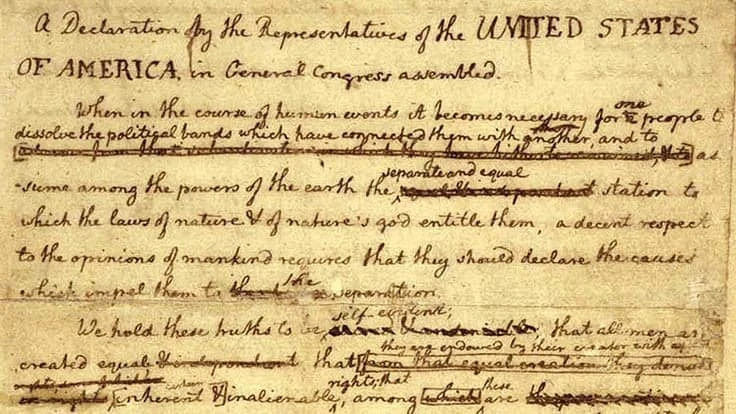 A Declaration by the Representatives of the UNITED STATES
OF AMERICA, in General Congress assembled.
one
When in the course of human events it becomes necessary for a people to
dissolve the political bands which have connected them with another, and to
as
separate and equal
-sume among the powers of the earth the equal & independant station to
which the laws of nature & of nature's god entitle them, a decent respect
to the opinions of mankind requires that they should declare the causes
the
which impel them to the separation.
self-evident;
We hold these truths to be, that all men are
they are endowed by their creator with
created equal & independant that from that equal creation they derive
certain
rights; that
these
[inherent &] inalienable, among which are